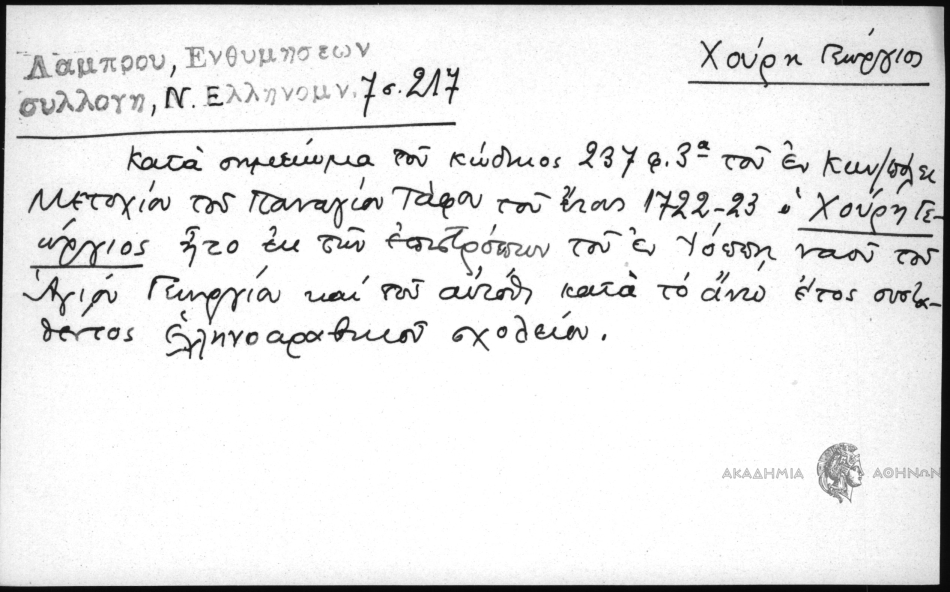 Λάμπρου, Ενθυμήσεων
συλλογή, Ν. Ελληνομν. 7 σ. 217
Χούρη Γεώργιος
Κατὰ σημείωμα τοῦ κώδικος 237 φ. 3α τοῦ ἐν Κων/πόλει
Μετοχίου τοῦ Παναγίου Τάφου τοῦ ἔτους 1722-23 ὁ Χούρη Γε-
ώργιος ἦτο ἐκ τῶν ἐπιτρόπων τοῦ ἐν Ἰόππῃ ναοῦ τοῦ
Ἁγίου Γεωργίου καὶ τοῦ αὐτόθι κατὰ τὸ ἄνω ἔτος συστα-
θέντος ἑλληνοαραβικοῦ σχολείου.
ΑΚΑΔΗΜΙΑ ΑΘΗΝΩΝ